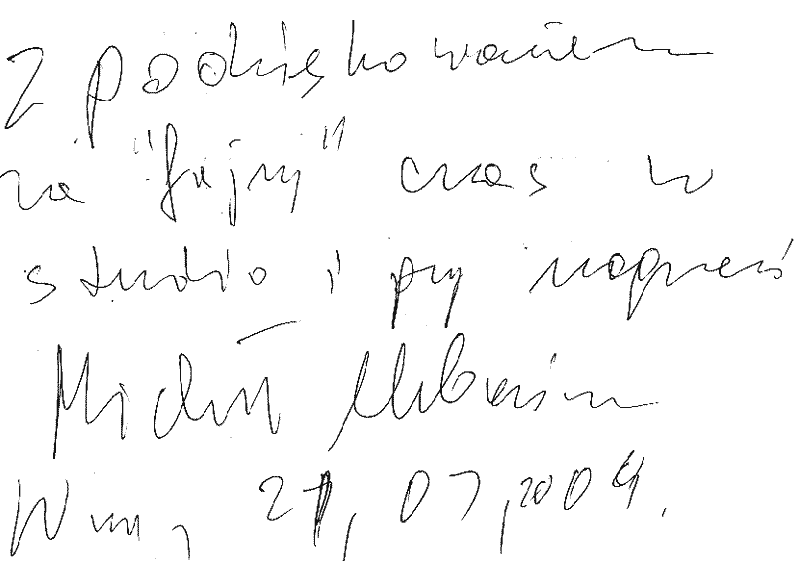 Z podziękowaniem
za "fajny" czas w
studio i przy nagraniu
Michał Urbaniak
21, 07, 2004.